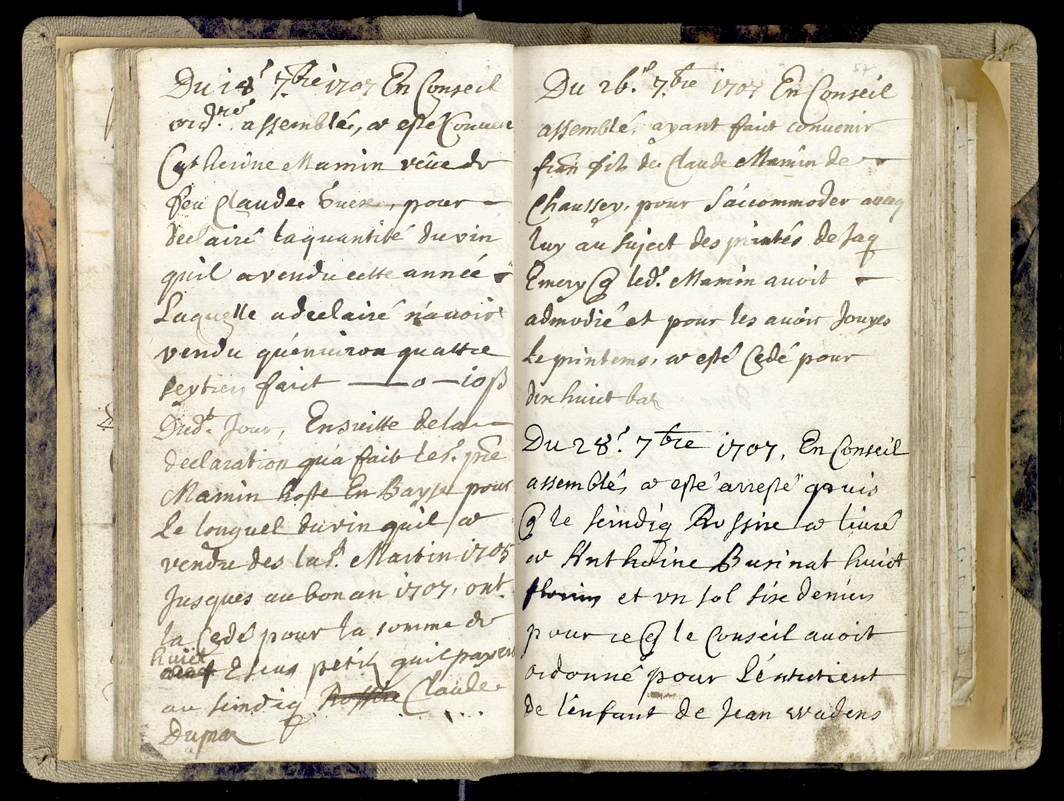 Du 18.e 7.bre 1707 En Conseil
ord.re assemblé, a esté Convenu
Catherine Mamin veüe de
feu Claude, pour
declairé la quantité du vin
quil a vendu cette année
Laquelle a declairé n'avoir
vendu quenviron quattre
seytiers faict — 0 — 10 ß
Dud.t Jour, Ensuitte de la
declaration qua fait le s.r pre
Mamin hoste En Bayse pour
Le longuel du vin quil a
vendu des la S.t Martin 1705
Jusques au bon an 1707, ont
la Cedé pour la somme de
huict
Escus petitz quil payera
au sindiq Rossire Claude
Dupra
Du 26.e 7.bre 1707 En Conseil
assemblé, ayant faict convenir
fran fils de Claude Mamin de
Chaussey, pour s'accommoder avecq
luy au suject des de Jaq
Emery q led. Mamin avoit
admodié et pour les avoir Jouyes
Le printems, a esté Cedé pour
dix huict batz
Du 28.e 7.bre 1707, En Conseil
assemblé, a esté arresté
q le sindiq Rossire a livré
a Anthoine Businat huict
florins et un sol six deniers
pour ce q le Conseil avoit
ordonné pour L'entretient
de l'enfant de Jean Wadens